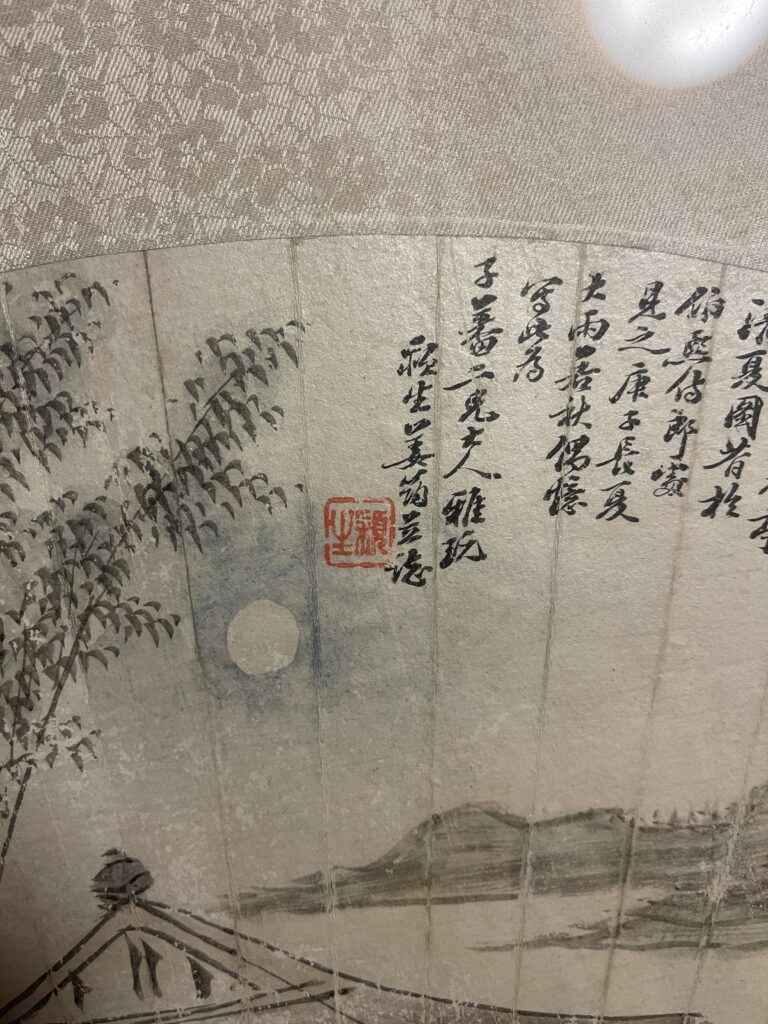 亭
夏圖昔於
熙侍郎處
見之庚子長夏
大雨若秋偶憶
寫此為
子蕃二兄大人雅玩
穎生姜筠並誌
穎生